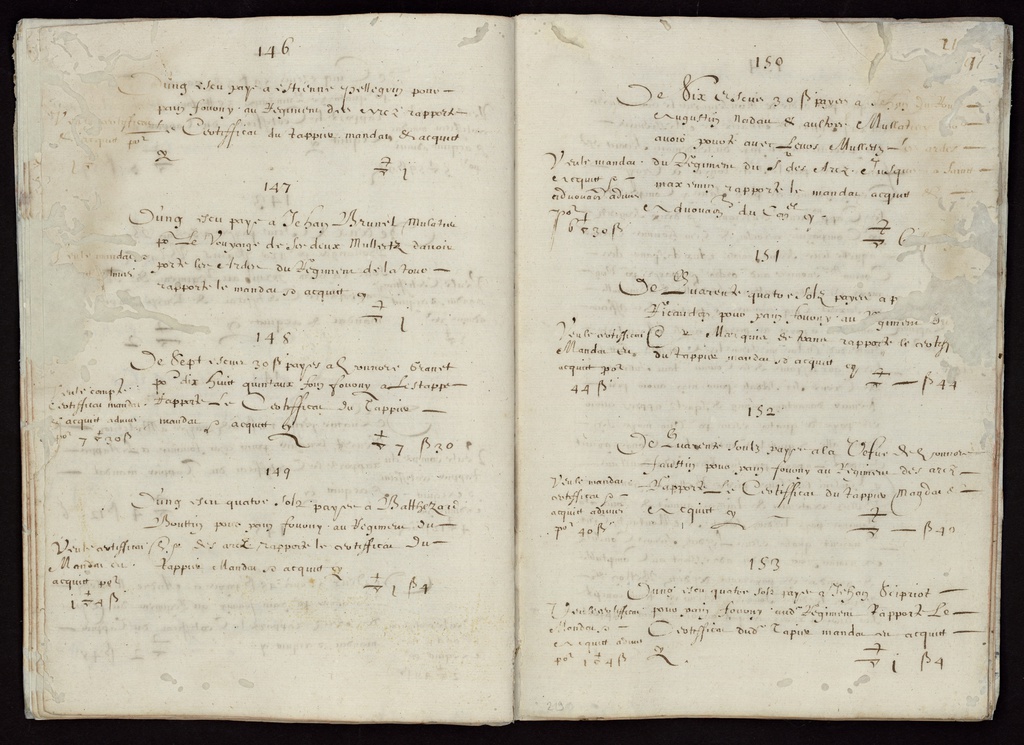 146
Dung escu paye a Estienne pellegrin pour
pain fourny au Regiment des Arcz rapporte
le Certifficat du tappier mandat & acquit
po.r
1
147
Dung escu paye a Jehan Brunel Mulatier
po.r Le Voyaige de se deux Mulletz davoir
porte les Ardes du Regiment de la tour
rapporte le mandat & acquit cy
1
148
De Sept escus 30 ß payes a honnore Granet
po.r dix huit quintaux foin fourny a Lestappe
Rapporte Le Certifficat Du Tappier
mandat & acquit cy
7 ß 30
Veu le compte
Certifficat mandat
& acquit admis
po.r 7 30 ß
149
Dung escu quatre solz payes a Balthezard
Boutin pour pain fourny au Regiment du
S.r des arcz rapporte le certifficat du
Tappier Mandat & acquit cy
1 ß 4
Veu le certifficat
Mandat et
acquit po.r
1 4 ß
150
De Six escus 30 ß payes a
Augustin Nadau & aultres Mullatiers
avoir porte avec Leurs Mulletz
du Regiment du S.r des Arcz Jusques a Saint
maxemin rapporte le mandat acquit
& advouacion du Con.el cy
6
Veu le mandat
& acquit &
advouacion admis
po.r
6 30 ß
151
De Quarente quatre solz payes a
Ricaudon pour pain fourny au Regiment
Marquis de rapporte le certiff
du tappier mandat & acquit cy
ß 44
Veu le certifficat
Mandat et
acquit po.r
44 ß
152
De Quarente soulz payes a la Vefue de honnore
faustin pour pain fourny au Regiment des arcz
Rapporte Le Certifficat du tappier Mandat
& acquit cy
ß 40
Veu le mandat
certifficat &
acquit admis
po.r 40 ß
153
Dung escu quatre solz payes a Jehan Scipriot
pour pain fourny aud. Regiment Rapporte Le
Certifficat dud. Tapier mandat et acquit
cy
1 ß 4
Veu le certifficat
Mandat &
& acquit admis
po.r 1 4 ß